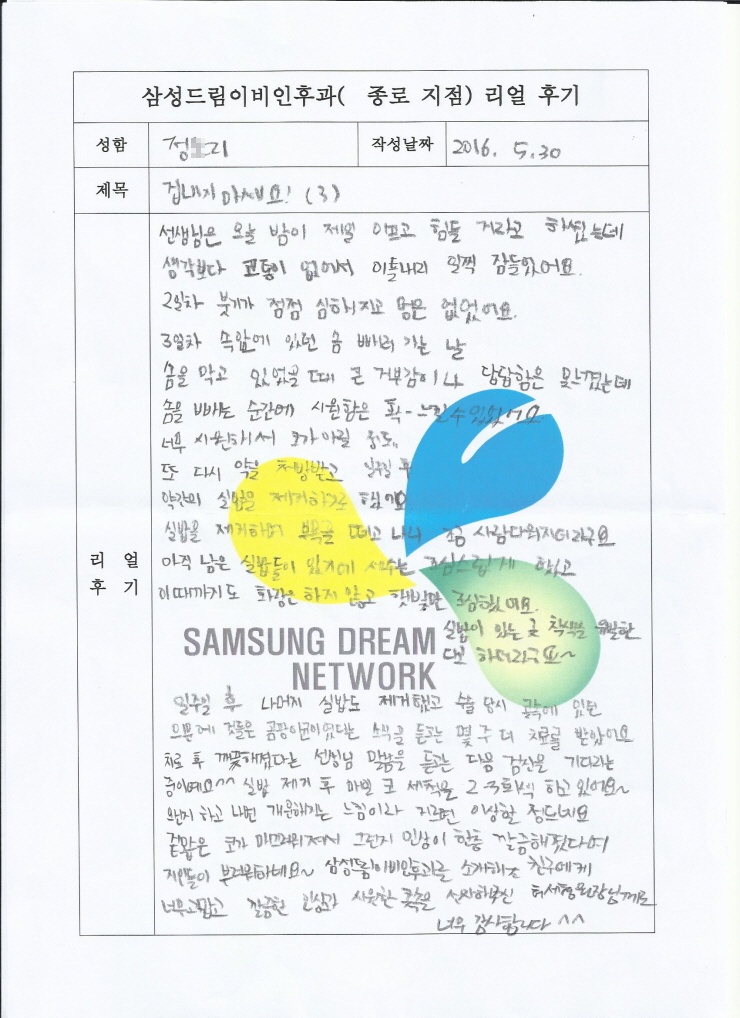 삼성드림이비인후과( 종로 지점) 리얼 후기
성함 정 리 작성날짜 2016. 5.30
제목 겁내지 마세요! (3)
리 얼 후 기
선생님은 오늘 밤이 제일 아프고 힘들 거라고 하셨는데
생각보다 고통이 없어서 이틀내리 일찍 잠들었어요.
2일차 붓기가 점점 심해지고 멍은 없었어요.
3일차 속안에 있던 솜 빼러 가는 날
솜을 막고 있었을 때 큰 거부감이나 답답함은 못느꼈는데
솜을 빼는 순간에 시원함은 확- 느낄수있었어요
너무 시원해서 코가 아릴 정도..
또 다시 약을 처방받고 일주일 후
약간의 실밥을 제거하기로 했어요
실밥을 제거하며 부목을 떼고 나니 조금 사람다워지더라구요
아직 남은 실밥들이 있기에 세수는 조심스럽게 했고
이때까지도 화장은 하지 않고 햇빛만 조심했어요.
실밥이 있는 곳 착색을 유발한
대요 하더라구요~
SAMSUNG DREAM
NETWORK
일주일 후 나머지 실밥도 제거했고 수술 당시 콧속에 있던
의문에 것들은 곰팡이균이었다는 소식을 듣고는 몇 주 더 치료를 받았어요
치료 후 깨끗해졌다는 선생님 말씀을 듣고는 다음 검진을 기다리는
중이에요^^ 실밥 제거 후 매일 코 세척을 2-3회씩 하고 있어요~
왠지 하고 나면 개운해지는 느낌이라 거르면 이상할 정도네요
겉모습은 코가 매끄러워져서 그런지 인상이 한층 깔끔해졌다며
지인들이 부러워하네요~ 삼성드림이비인후과를 소개해준 친구에게
너무고맙고 깔끔한 인상과 시원한 콧속을 선사해주신 원장님께도
너무 감사합니다 ^^